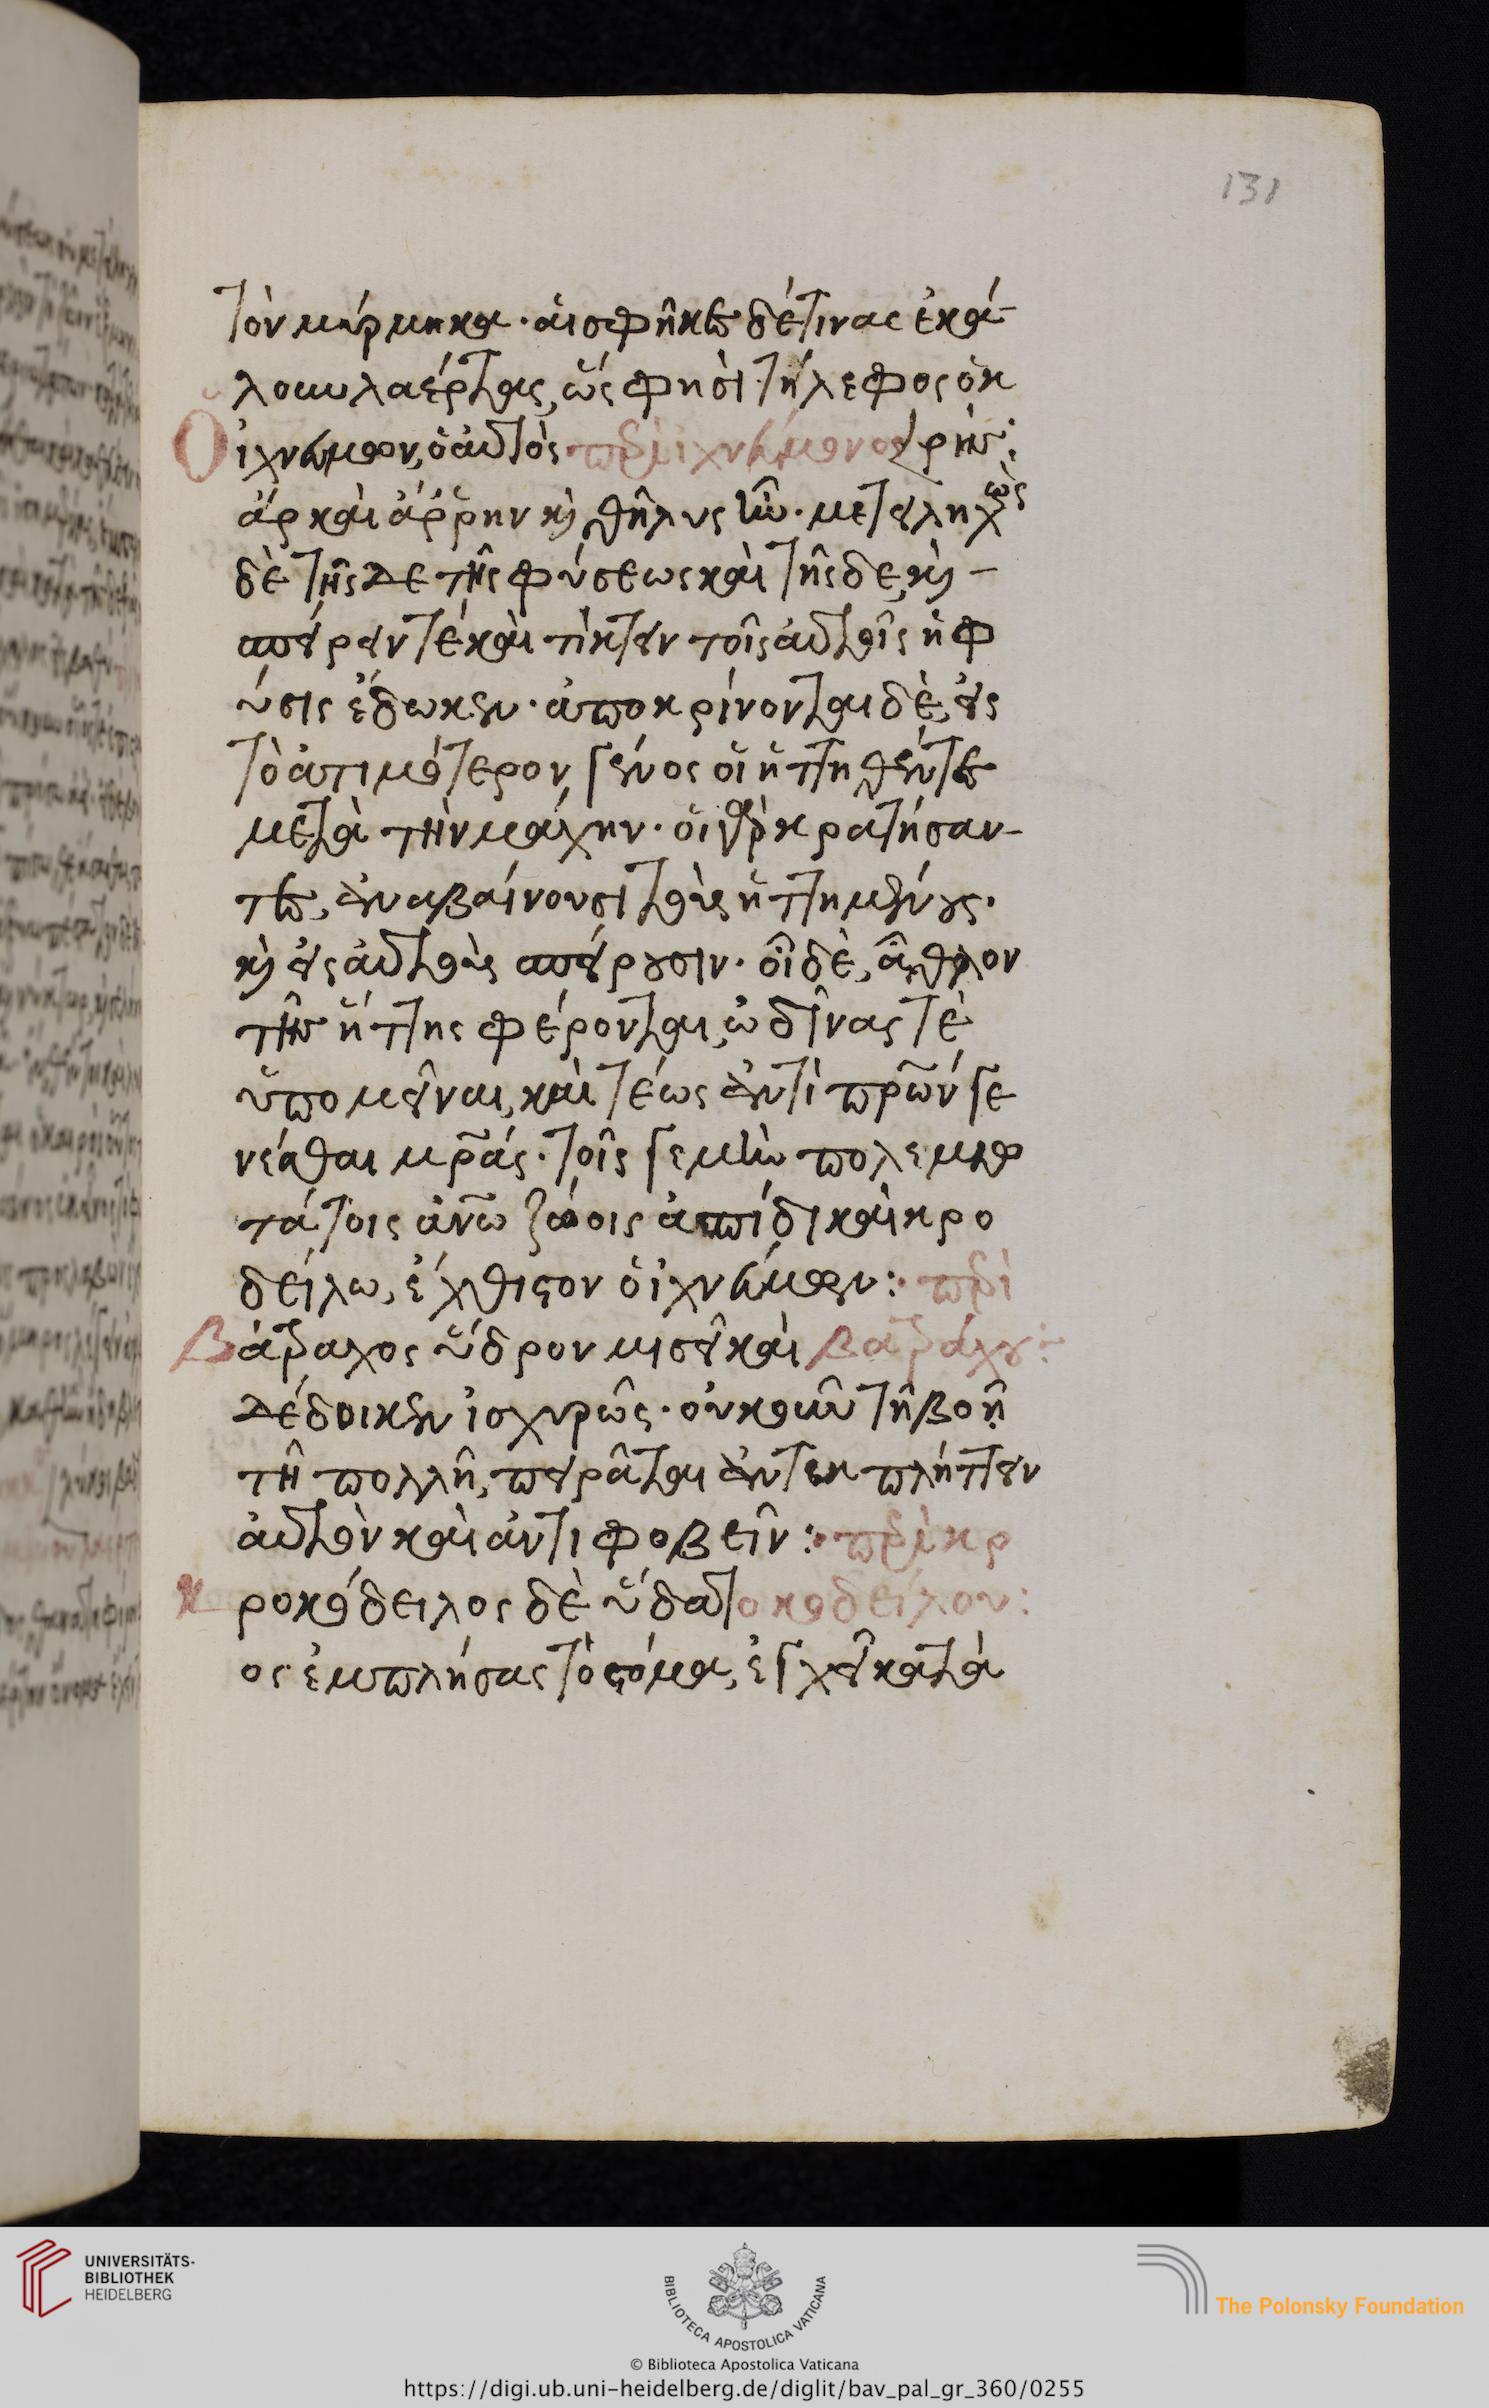 131
τὸν μύρμηκα· ἁι σφῆκες δέ τινας ἐκά-
λουν λαέρτας, ὥς φησὶ τήλεφος ὁ κ
Ὁ ἰχνεύμων, ὁ ἀυτὸς περὶ ἰχνεύμονος
ἄρ καὶ ἄρρην κὶ θῆλυς ἦν· μετειληχὼς
δὲ τῆσδε τῆς φύσεως καὶ τῆσδε, κὶ -
σπείρειν τέ καὶ τίκτειν τοῖς ἀυτοῖς ἡ φ
ύσις ἔδωκεν· ἀποκρίνονται δὲ, εἰς
τὸ ἀτιμότερον γένος οἵ ἡττηθέντες
μετὰ τὴν μάχην· οἱ γὰρ κρατήσαν-
τες, ἀναβαίνουσι τοὺς ἡττημένους·
κὶ εἰς ἀυτοὺς σπείρουσιν· οἳ δὲ, ἆθλον
τῆς ἥττης φέρονται, ὠδῖνας τὲ
ὑπομεῖναι, καὶ τέως ἀντὶ πρων γε
νέσθαι μρας· τοῖς γε μὴν πολεμιω
τάτοις ανω ζώοις ἀσπίδι καὶ κρο
δείλω, ἔχθιστον ὁ ἰχνεύμων: περὶ
Βάτραχος ὕδρον μισεῖ καὶ βατράχου:
δέδοικεν ἰσχυρῶς· οὐκοῦν τῆ βοῆ
τῆ πολλῆ, πειρᾶται ἀντεκπλήττειν
ἀυτὸν καὶ ἀντιφοβεῖν: περὶ κρ
κροκόδειλος δὲ ὕδατ οκοδείλου:
ος ἐμπλήσας τὸ στόμα, ἐγχεῖ κατὰ
UNIVERSITÄTS-
BIBLIOTHEK
HEIDELBERG
BIBLIOTECA APOSTOLICA VATICANA
The Polonsky Foundation
© Biblioteca Apostolica Vaticana
https://digi.ub.uni-heidelberg.de/diglit/bav_pal_gr_360/0255